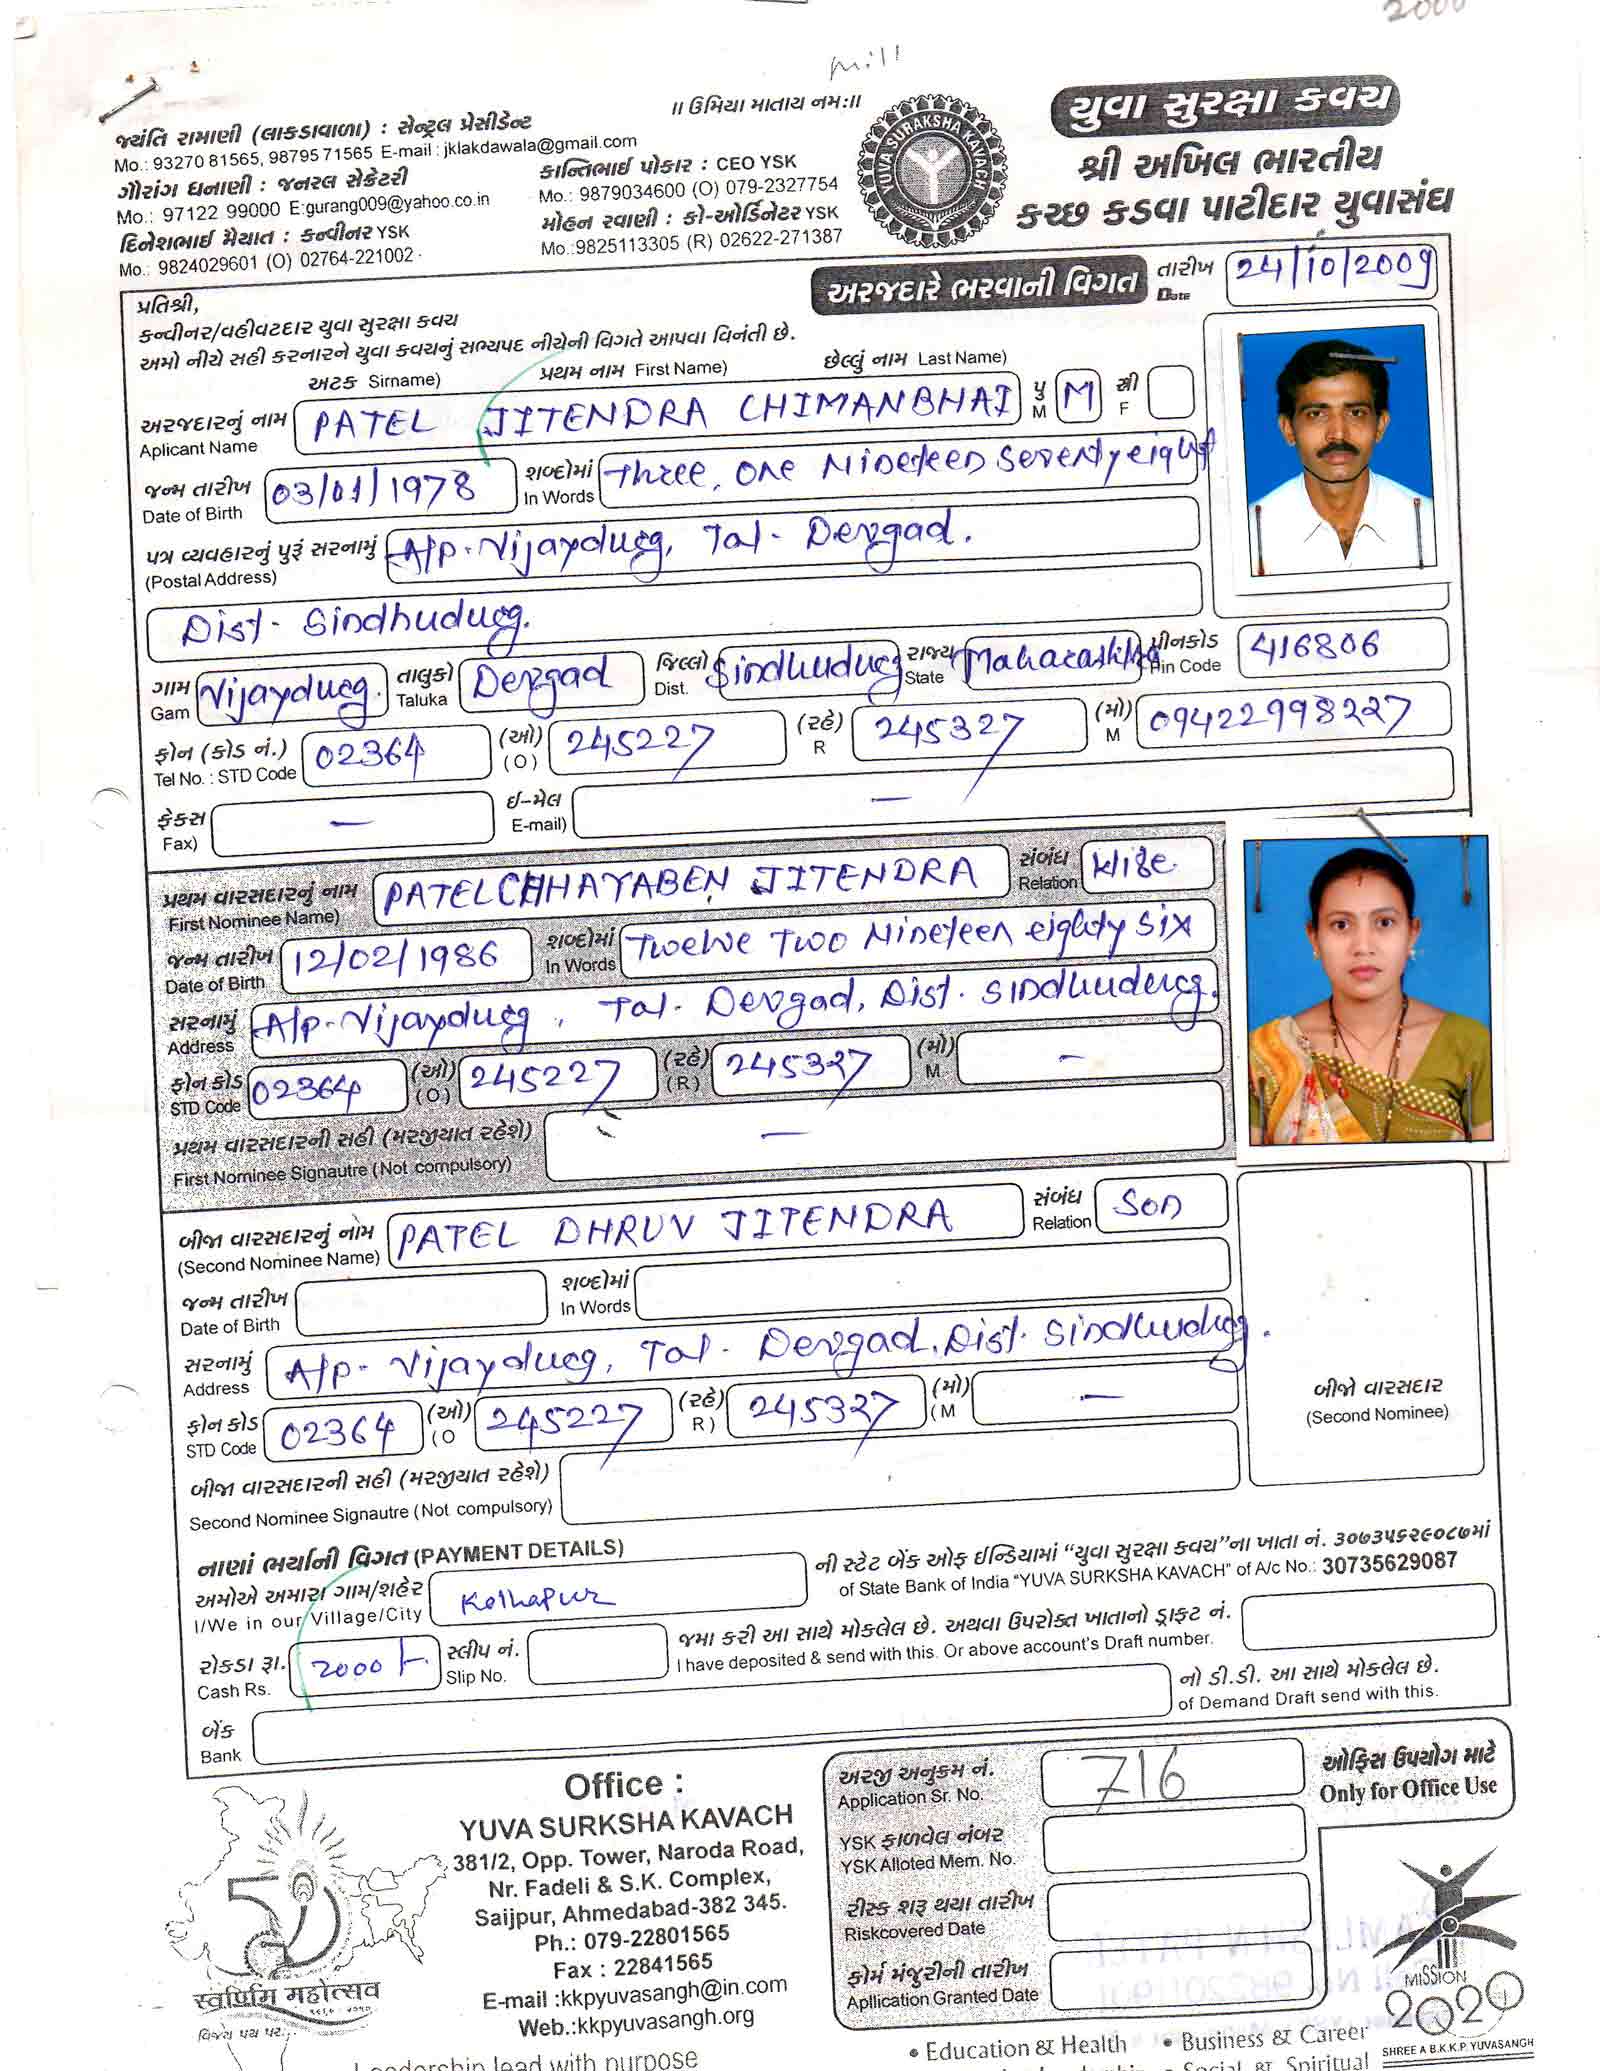 2000
mill
॥ ઉમિયા માતાય નમઃ॥
જ્યંતિ રામાણી (લાકડાવાળા) : સેન્ટ્રલ પ્રેસીડેન્ટ
Mo.: 93270 81565, 98795 71565 E-mail : jklakdawala@gmail.com
ગૌરાંગ ધનાણી : જનરલ સેક્રેટરી
Mo.: 97122 99000 E:gurang009@yahoo.co.in
દિનેશભાઈ મૈયાત : કન્વીનર YSK
Mo.: 9824029601 (O) 02764-221002
કાન્તિભાઈ પોકાર : CEO YSK
Mo.: 9879034600 (O) 079-2327754
મોહન રવાણી : કો-ઓર્ડિનેટર YSK
Mo.:9825113305 (R) 02622-271387
YUVA SURAKSHA KAVACH
યુવા સુરક્ષા કવચ
શ્રી અખિલ ભારતીય
કચ્છ કડવા પાટીદાર યુવાસંઘ
અરજદારે ભરવાની વિગત તારીખ Date 24/10/2009
પ્રતિશ્રી,
કન્વીનર/વહીવટદાર યુવા સુરક્ષા કવચ
અમો નીચે સહી કરનારને યુવા કવચનું સભ્યપદ નીચેની વિગતે આપવા વિનંતી છે.
અટક Sirname) પ્રથમ નામ First Name) છેલ્લું નામ Last Name)
અરજદારનું નામ Aplicant Name PATEL JITENDRA CHIMANBHAI પુ M M સ્ત્રી F
જન્મ તારીખ Date of Birth 03/01/1978 શબ્દોમાં In Words Three, one Nineteen seventy eight
પત્ર વ્યવહારનું પુરૂં સરનામું (Postal Address) A/p. Vijaydurg, Tal - Devgad.
Dist - Sindhudurg.
ગામ Gam Vijaydurg. તાલુકો Taluka Devgad જિલ્લો Dist. Sindhudurg રાજ્ય State Maharashtra પીનકોડ Pin Code 416806
ફોન (કોડ નં.) Tel No. : STD Code 02364 (ઓ) (O) 245227 (રહે) R 245327 (મો) M 09422998227
ફેક્સ Fax) — ઈ-મેલ E-mail) —
પ્રથમ વારસદારનું નામ First Nominee Name) PATEL CHHAYABEN JITENDRA સંબંધ Relation Wife.
જન્મ તારીખ Date of Birth 12/02/1986 શબ્દોમાં In Words Twelve Two Nineteen eighty six
સરનામું Address A/p - Vijaydurg, Tal. Devgad, Dist. Sindhudurg.
ફોન કોડ STD Code 02364 (ઓ) (O) 245227 (રહે) (R) 245327 (મો) M —
પ્રથમ વારસદારની સહી (મરજીયાત રહેશે)
First Nominee Signautre (Not compulsory) —
બીજા વારસદારનું નામ (Second Nominee Name) PATEL DHRUV JITENDRA સંબંધ Relation Son
જન્મ તારીખ Date of Birth શબ્દોમાં In Words
સરનામું Address A/p - Vijaydurg, Tal - Devgad, Dist. Sindhudurg.
ફોન કોડ STD Code 02364 (ઓ) (O 245227 (રહે) R) 245327 (મો) (M —
બીજો વારસદાર
(Second Nominee)
બીજા વારસદારની સહી (મરજીયાત રહેશે)
Second Nominee Signautre (Not compulsory)
નાણાં ભર્યાની વિગત (PAYMENT DETAILS)
અમોએ અમારા ગામ/શહેર I/We in our Village/City Kolhapur
ની સ્ટેટ બેંક ઓફ ઈન્ડિયામાં “યુવા સુરક્ષા કવચ”ના ખાતા નં. ૩૦૭૩૫૬૨૯૦૮૭માં
of State Bank of India “YUVA SURKSHA KAVACH” of A/c No.: 30735629087
રોકડા રૂા. Cash Rs. 2000/- સ્લીપ નં. Slip No.
જમા કરી આ સાથે મોકલેલ છે. અથવા ઉપરોક્ત ખાતાનો ડ્રાફ્ટ નં.
I have deposited & send with this. Or above account's Draft number.
બેંક Bank
નો ડી.ડી. આ સાથે મોકલેલ છે.
of Demand Draft send with this.
Office :
YUVA SURKSHA KAVACH
381/2, Opp. Tower, Naroda Road,
Nr. Fadeli & S.K. Complex,
Saijpur, Ahmedabad-382 345.
Ph.: 079-22801565
Fax : 22841565
E-mail :kkpyuvasangh@in.com
Web.:kkpyuvasangh.org
અરજી અનુક્રમ નં. Application Sr. No. 716
ઓફિસ ઉપયોગ માટે
Only for Office Use
YSK ફાળવેલ નંબર
YSK Alloted Mem. No.
રીસ્ક શરૂ થયા તારીખ
Riskcovered Date
ફોર્મ મંજુરીની તારીખ
Apllication Granted Date
50
સ્વર્ણિમ મહોત્સવ
MISSION
2020
SHREE A.B.K.K.P. YUVASANGH
• Education & Health • Business & Career
Leadership lead with purpose
Social & Spiritual